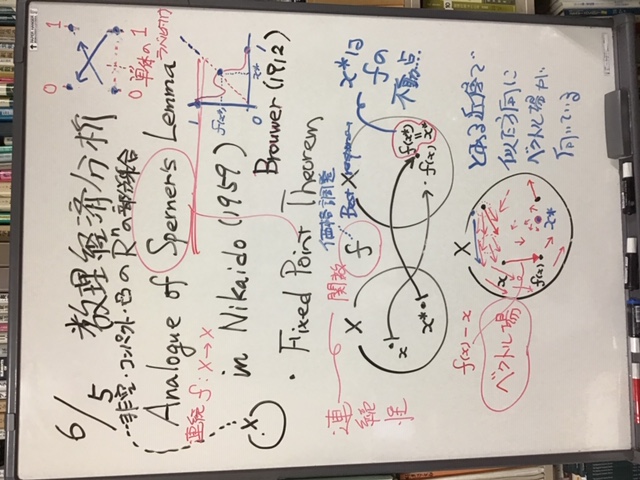 6/5 数理経済分析
非空・コンパクト・凸の Rⁿの部分集合
Analogue of Sperner's Lemma
連続 f: X→X
in Nikaido (1959)
Brouwer (1912)
X
・Fixed Point Theorem
0 1
0 1
単体の
f(x)
x*
0
1
連続性
関数
f
価格調整
Best response
x*は
fの
不動点
X
X
x
x*
f(x*)
=
x*
f(x)
とある近傍で
似た方向に
ベクトル場が
向いている
X
x
f(x)
x*
f(x)-x
ベクトル場